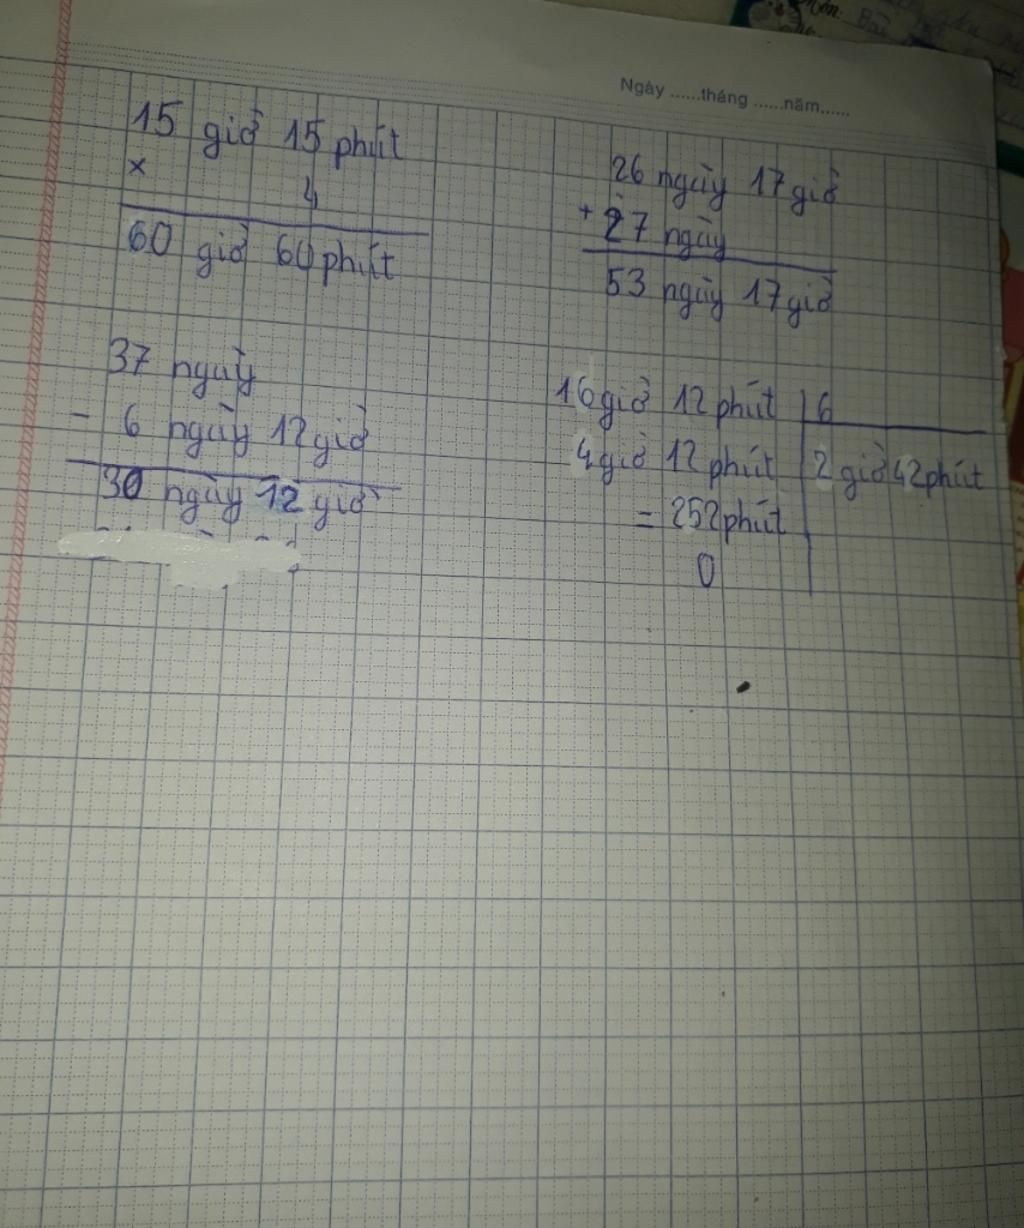 Ngày ......tháng ......năm......
15 giờ 15 phút
×
4
60 giờ 60 phút
26 ngày 17 giờ
+ 27 ngày
53 ngày 17 giờ
37 ngày
- 6 ngày 12 giờ
30 ngày 12 giờ
16 giờ 12 phút 6
4 giờ 12 phút 2 giờ 42 phút
= 252 phút
0